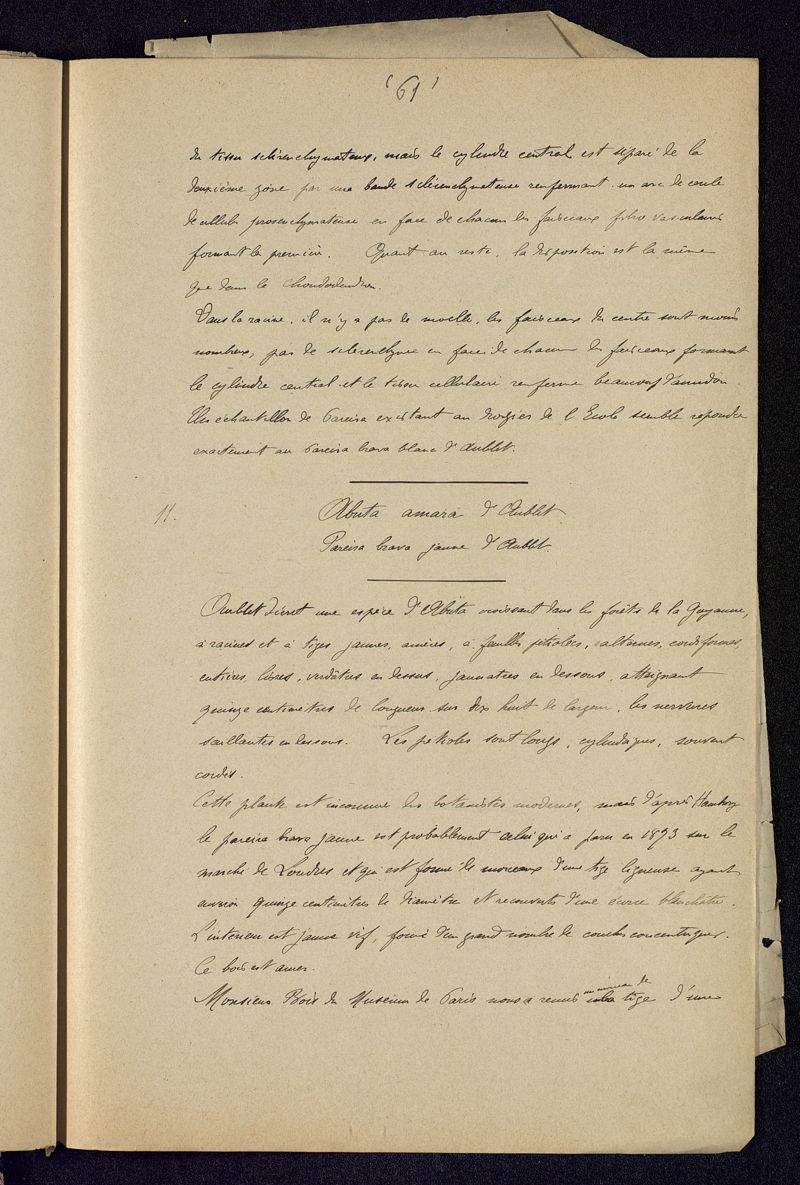 (61)
du tissu sclérenchymateux, mais le cylindre central est séparé de la
deuxième zone par une bande sclérenchymateuse renfermant un arc de
de cellule prosenchymateuse en face de chacun des faisceaux fibro vasculaires
formant la première. Quant au reste, la disposition est la même
que dans le Chondodendron.
Dans la racine, il n'y a pas de moelle, les faisceaux du centre sont moins
nombreux, pas de sclérenchyme en face de chacun des faisceaux formant
le cylindre central et le tissu cellulaire renferme beaucoup d'amidon.
Un échantillon de Pareira existant au droguier de l'Ecole semble répondre
exactement au Pareira brava blanc d'Aublet.
11. Abuta amara d'Aublet.
Pareira brava jaune d'Aublet.
Aublet décrit une espèce d'Abuta croissant dans les forêts de la Guyanne,
à racines et à tiges jaunes, amères, à feuilles pétiolées, alternes, cordiformes,
entières, lisses, verdâtres en dessus, jaunatres en dessous, atteignant
quinze centimètres de longueur sur dix huit de largeur, les nervures
saillantes en dessous. Les pétioles sont longs, cylindriques, souvent
cordés.
Cette plante est inconnue des botanistes modernes, mais d'après Hanbury
le pareira brava jaune est probablement celui qui a paru en 1873 sur le
marché de Londres et qui est formé de morceaux d'une tige ligneuse ayant
environ quinze centimètres de diamètre et recouverts d'une écorce blanchatre.
L'intérieur est jaune vif, formé d'un grand nombre de couches concentriques.
Ce bois est amer.
Monsieur Bois du Muséum de Paris nous a remis un morceau de tige d'une